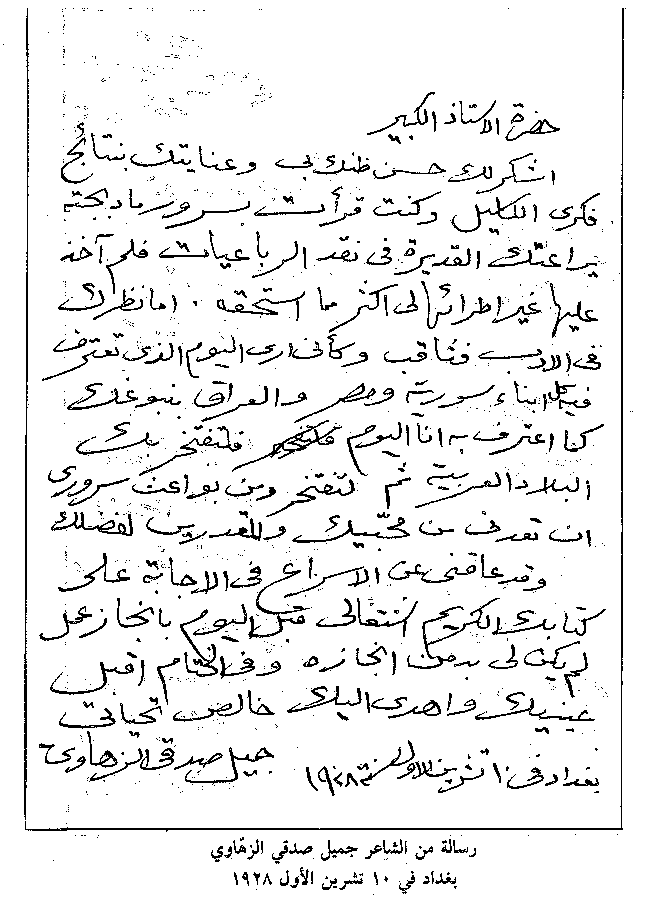 حضرة الاستاذ الكبير
اشكر لك حسن ظنك بي وعنايتك بنتائج
فكري الكليل وكنت قرأت بسرور ما دبجته
يراعتك القديرة في نقد الرباعيات فلم آخذ
عليها غير اطرائها لي اكثر مما استحقه . اما نظرك
في الادب فثاقب وكأني ارى اليوم الذي تعترف
فيه كل ابناء سورية ومصر والعراق بنبوغك
كما اعترف به انا اليوم فلتفتخر بك
البلاد العربية ثم لتفتخر ومن بواعث سروري
ان تعدني من محبيك والمقدرين لفضلك
وقد عاقني عن الاسراع في الاجابة على
كتابك الكريم اشتغالي قبل اليوم بانجاز عمل
لم يكن لي بد من انجازه وفي الختام اقبل
عينيك واهدي اليك خالص تحياتي
بغداد في ١٠ تشرين الاول سنة ١٩٢٨ جميل صدقي الزهاوي
رسالة من الشاعر جميل صدقي الزهاوي
بغداد في ١٠ تشرين الأول ١٩٢٨